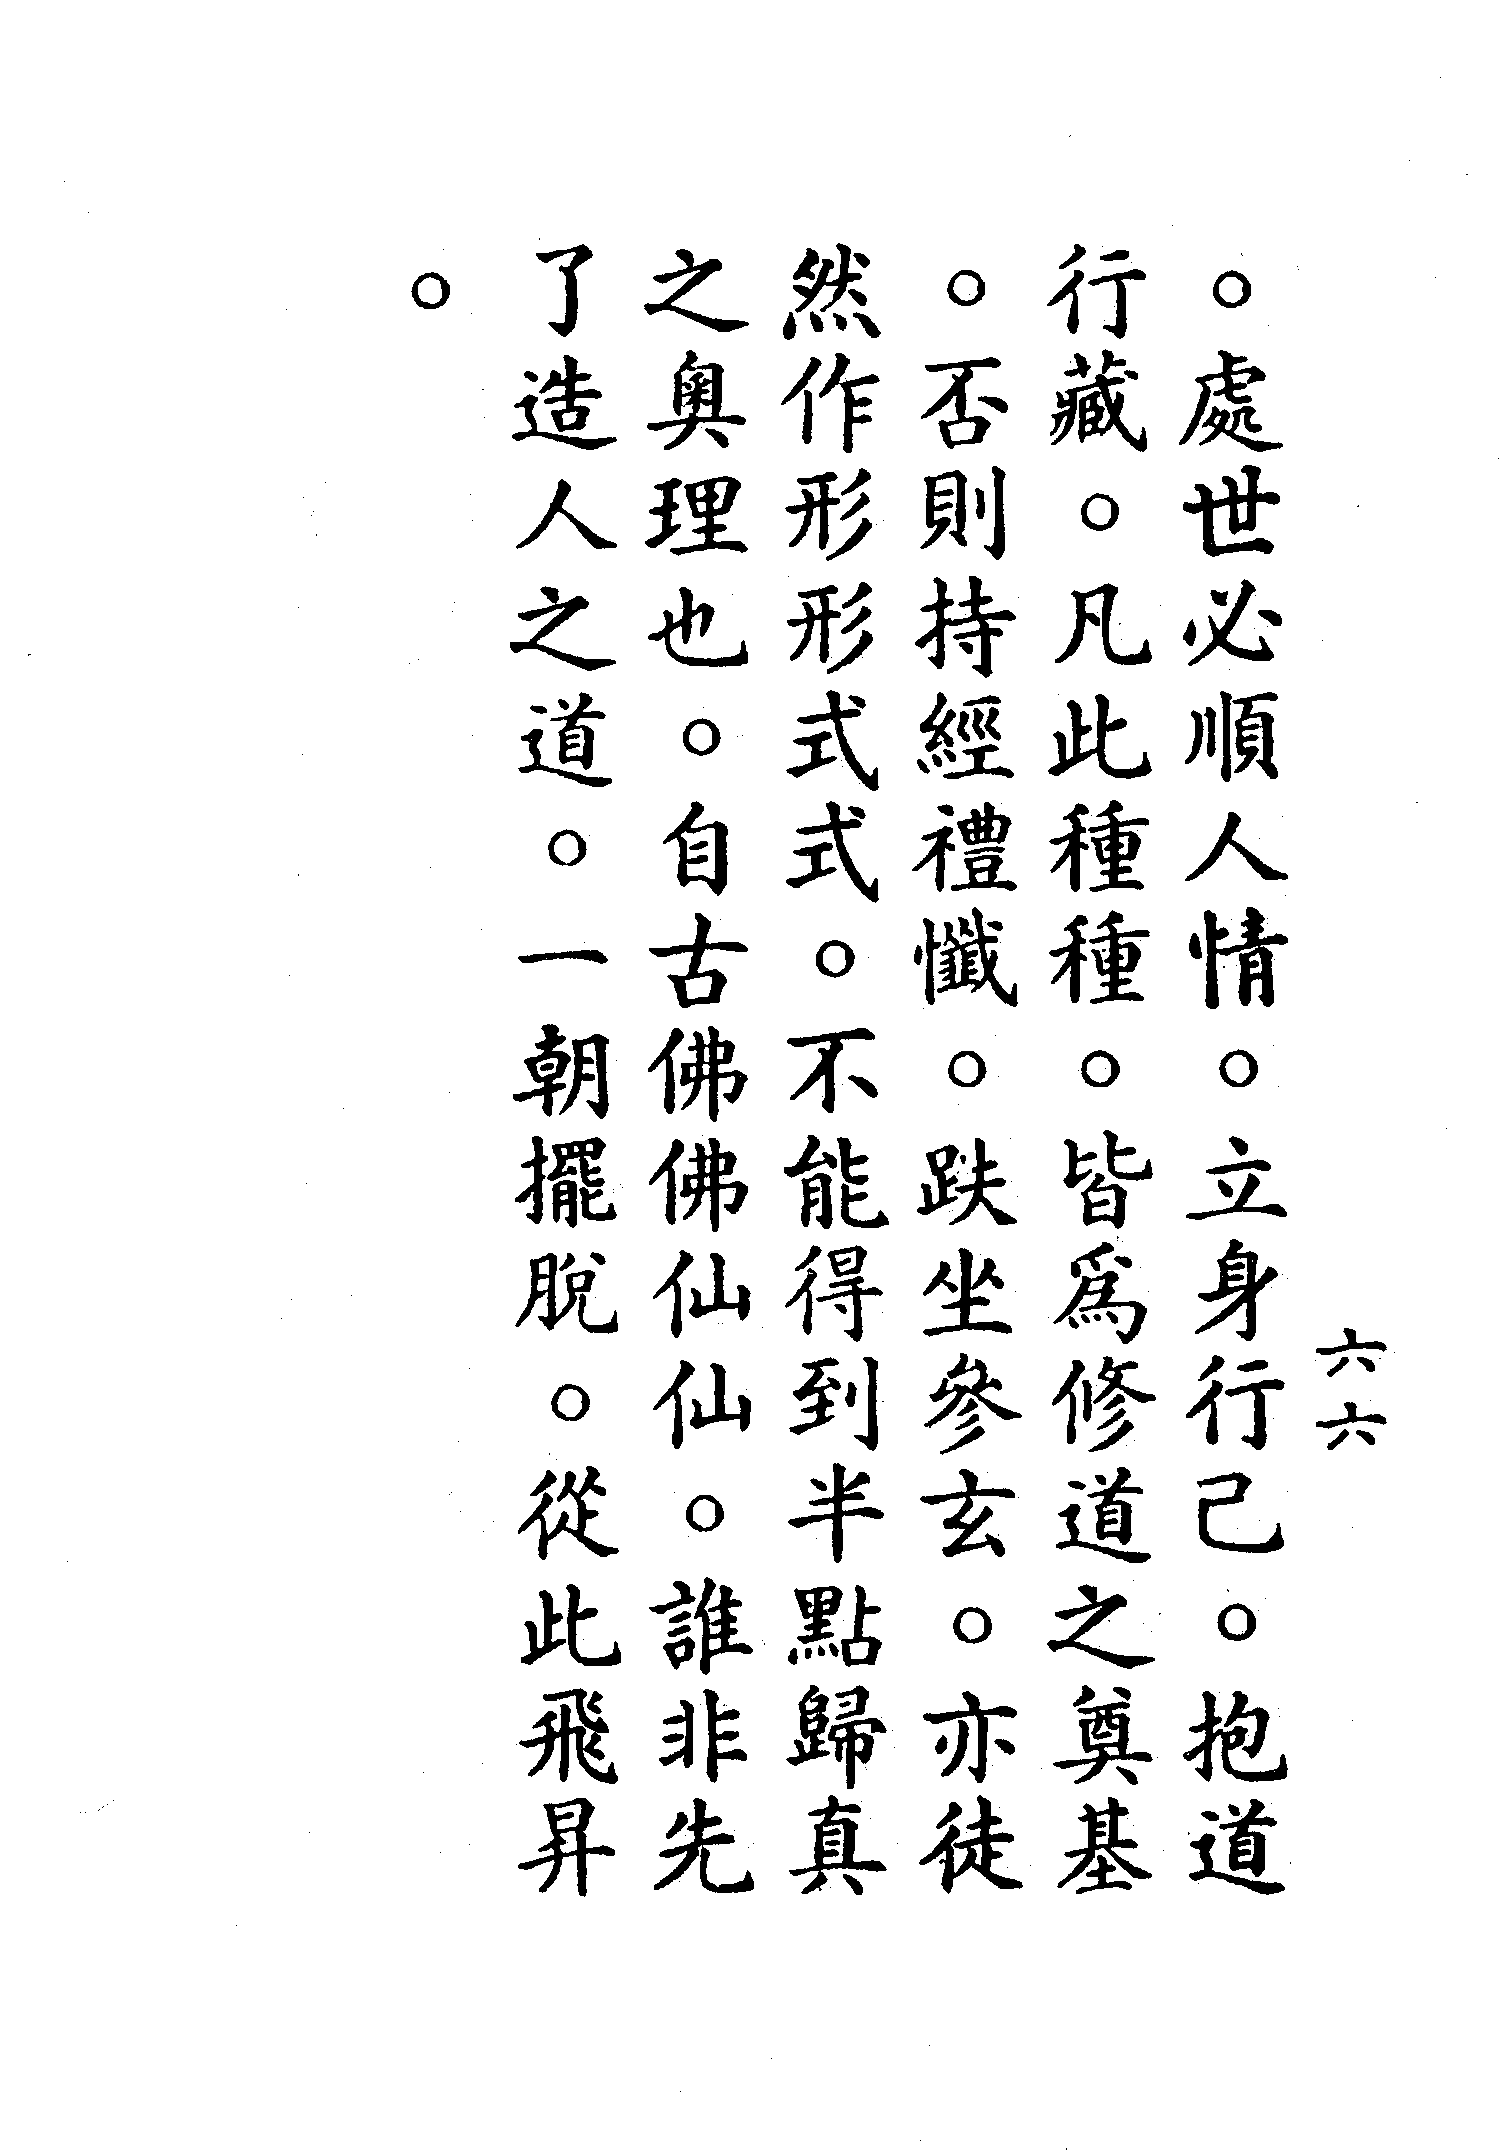 六六
。處世必順人情。立身行己。抱道
行藏。凡此種種。皆爲修道之奠基
。否則持經禮懺。趺坐參玄。亦徒
然作形形式式。不能得到半點歸真
之奧理也。自古佛佛仙仙。誰非先
了造人之道。一朝擺脫。從此飛昇
。